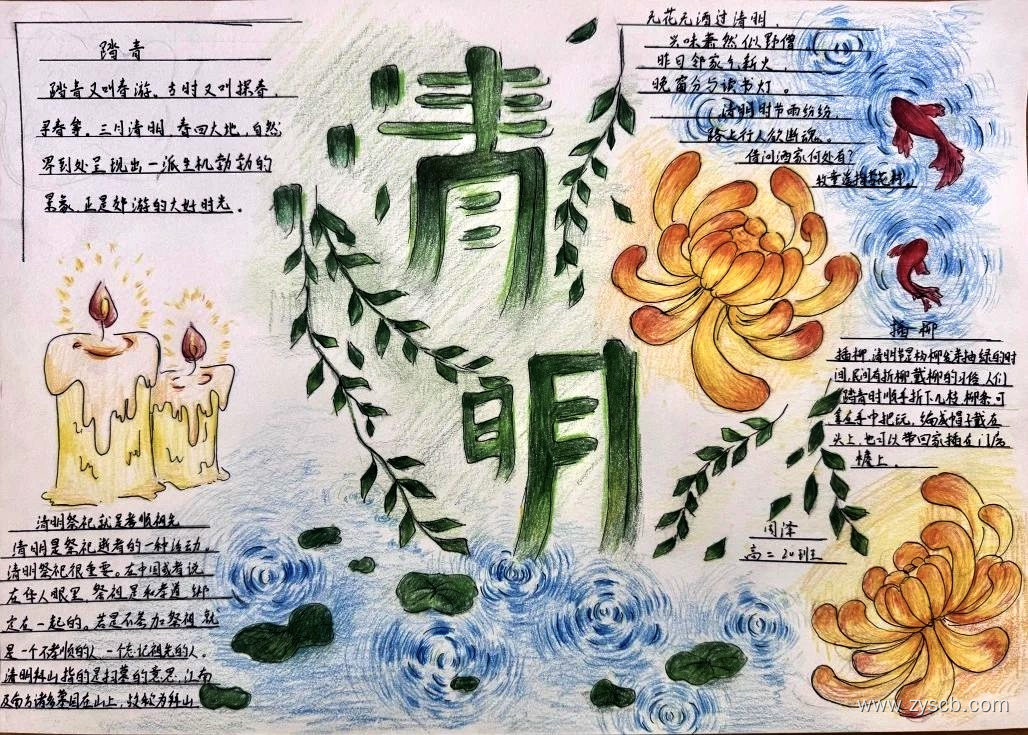 踏青
踏青又叫春游。古时又叫探春、
寻春等。三月清明,春回大地,自然
界到处呈现出一派生机勃勃的
景象,正是郊游的大好时光。
清
明
无花无酒过清明,
兴味萧然似野僧
昨日邻家乞新火,
晓窗分与读书灯。
清明时节雨纷纷
路上行人欲断魂。
借问酒家何处有?
牧童遥指杏花村。
插柳
插柳,清明节是杨柳发芽抽绿的时
间,民间有折柳、戴柳的习俗,人们
踏青时顺手折下几枝柳条,可
拿在手中把玩,编成帽子戴在
头上,也可以带回家插在门
檐上。
高二20班
清明祭祀就是孝顺祖先
清明是祭祀逝者的一种活动。
清明祭祀很重要。在中国或者说
在华人眼里,祭祖是和孝道绑
定在一起的。若是不参加祭祖,就
是一个不孝顺的人,一个忘记祖先的人。
清明拜山指的是扫墓的意思,江南
及南方诸多墓园在山上,故称为拜山
www.zyscb.com